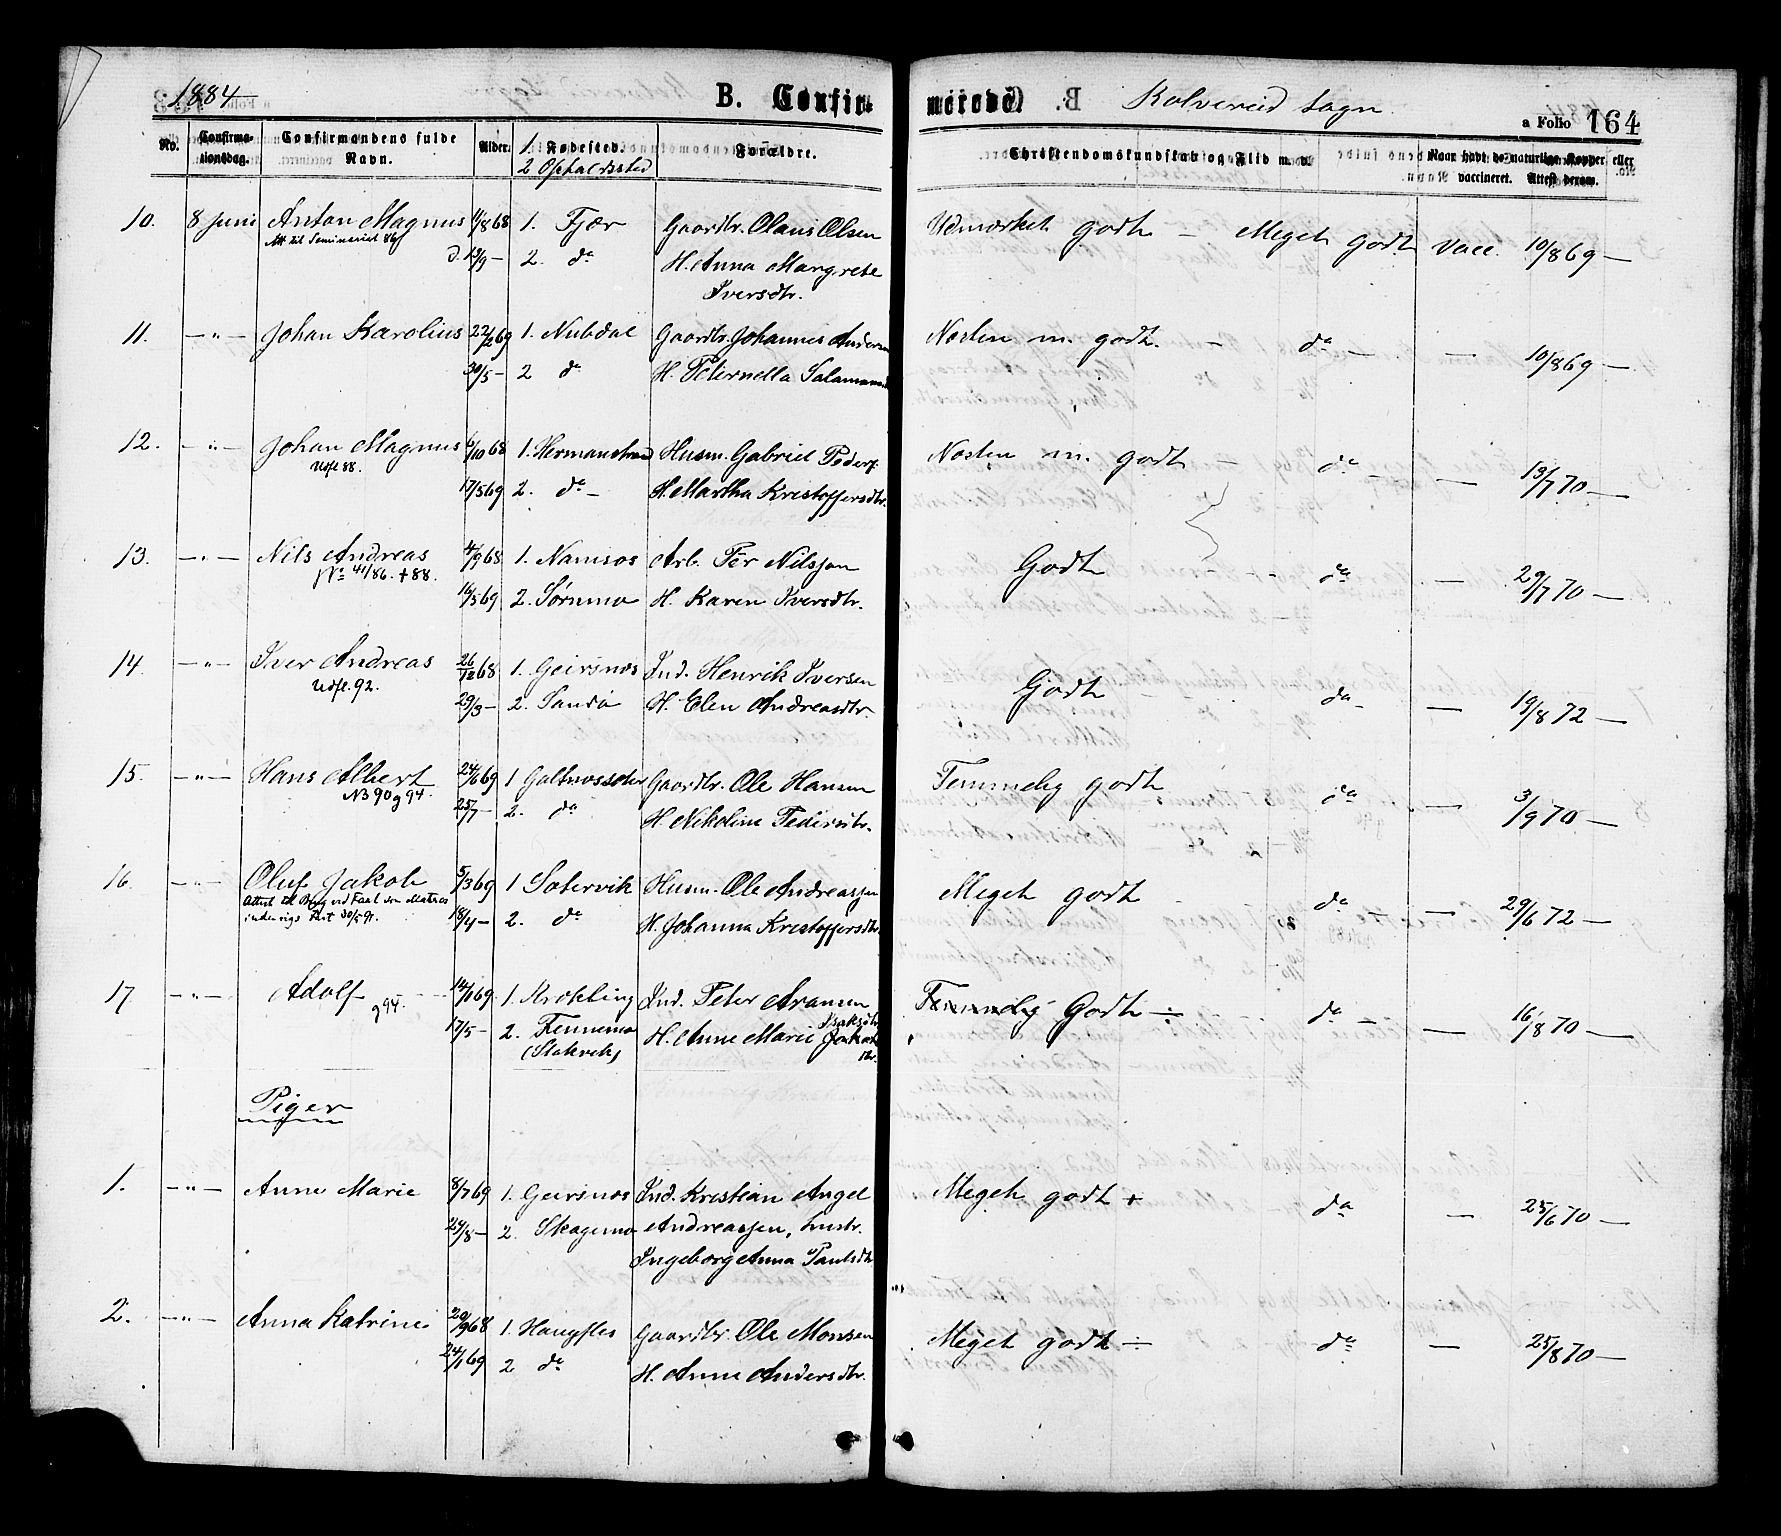 1884 B. Confirmerede. Kolvereid Sogn. a Folio 164
No. Confirmationsdag. Confirmandens fulde Navn. Alder. 1. Fødested. 2 Opholdssted Forældre. Christendomskundskab og Flid m. v. Naar havt de naturlige Kopper eller vaccineret. Attest derom.
10. 8 Juni Anton Magnus 11/8 68 1. Fjær Gaardbr. Olaus Olsen Udmærket godt — Meget godt Vacc. 10/8 69 —
Att til Seminariet 86 d. 13/9 — 2. do H. Anna Margrete
Iversdtr.
11. — " — Johan Karolius 22/2 69 1. Nubdal Gaardbr. Johannes Anders Næsten m. godt. — do — — 10/8 69 —
30/5 — 2 do H. Peternella
12. — " — Johan Magnus 6/10 68 1. Hermanstrand Husm. Gabriel Peders. Næsten m. godt — do — — 13/7 70 —
Udfl 88. 17/5 69 2. do — H. Martha Kristoffersdtr.
13. — " — Nils Andreas 4/9 68 1. Namsos Arb. Per Nilssen Godt do — 29/7 70 —
No 41/86. + 88. 16/5 69 2. Sørnmo H. Karen Iversdtr.
14. — " — Iver Andreas 26/12 68 1. Geirsnæs Ind. Henrik Iversen Godt — do — 19/8 72 —
Udfl. 92. 29/3 — 2. Sandø H. Elen Andreasdtr.
15. — " — Hans Albert 24/6 69 1 Gaardbr. Ole Hansen Temmelig godt do — 3/9 70 —
NB 90 g 94. 25/7 — 2. do H. Nikoline Pedersdtr.
16. — " — Oluf Jakob 5/3 69 1 Sætervik Husm. Ole Andreassen Meget godt do — 29/6 72 —
Attest til Brug ved Fart som Matros 18/4 — 2. do H. Johanna Kristoffersdtr.
indenrigs Fart 30/5 91.
17 — " — Adolf 14/1 69 1. Krokling Ind. Peter Aransen Temmelig Godt ÷ do — — 16/8 70 —
g 94. 17/5 — 2. Fennemo H. Anne Marie Isaksdtr
(Slakvik)
Piger
1. — " — Anne Marie 8/7 69 1. Geirsnæs Ind. Kristian Angel Meget godt + do — 25/6 70 —
24/8 — 2. Skagemo Andreassen, Hustr.
Ingeborg Anna Paulsdtr
2. — " — Anna Katrine 20/9 68 1. Haugfles Gaardbr. Ole Monsen Meget godt ÷ do — 25/8 70 —
24/1 69 2 do H. Anne Andersdtr.